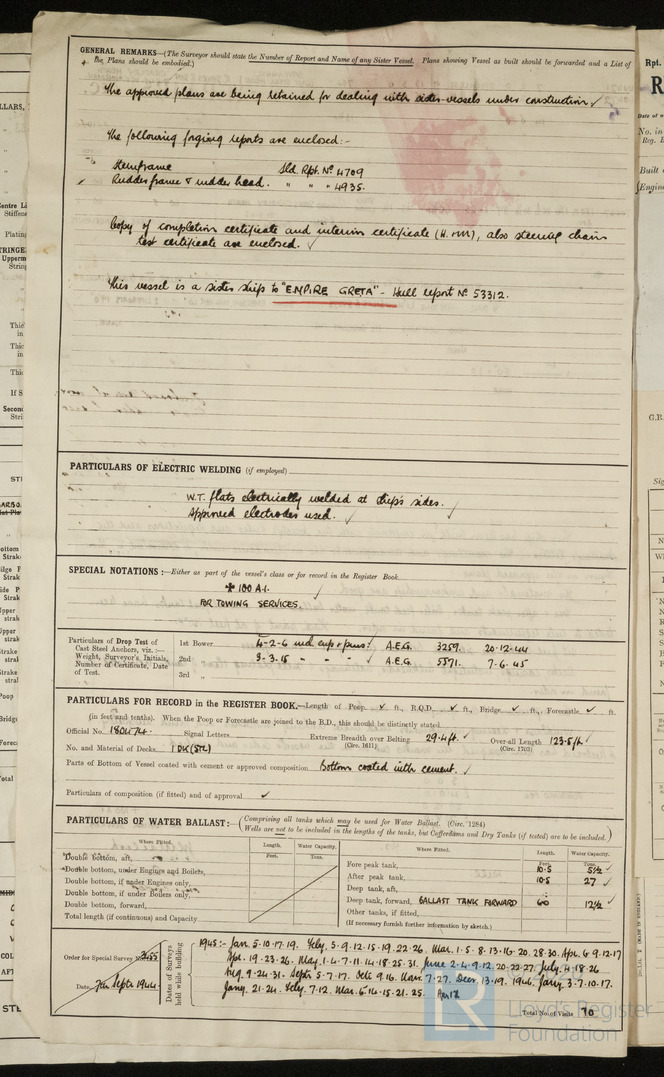 GENERAL REMARKS—(The Surveyor should state the Number of Report and Name of any Sister Vessel. Plans showing Vessel as built should be forwarded and a List of
the Plans should be embodied.)
The approved plans are being retained for dealing with sister vessels under construction ✓
The following forging reports are enclosed:-
Sternframe Sld. Rpt. No 4709
Rudderframe & rudder head. " " " 4935.
Copy of completion certificate and interim certificate (H. & M), also steering chain
test certificate are enclosed. ✓
This vessel is a sister ship to "EMPIRE GRETA" - Hull report No 53312.
PARTICULARS OF ELECTRIC WELDING (if employed)
W.T. flats electrically welded at ship's sides.
Approved electrodes used. ✓ ✓
SPECIAL NOTATIONS:—Either as part of the vessel's class or for record in the Register Book
✠ 100 A.1. ✓
FOR TOWING SERVICES.
Particulars of Drop Test of
Cast Steel Anchors, viz.:—
Weight, Surveyor's Initials,
Number of Certificate, Date
of Test.
1st Bower 4-2-6 incl. cup & pins ✓ A.E.G. 3259. 20-12-44
2nd " 3-3-15 " " " ✓ A.E.G. 5571. 7-6-45
3rd "
PARTICULARS FOR RECORD in the REGISTER BOOK.—Length of Poop ✓ ft., R.Q.D. ✓ ft., Bridge ✓ ft., Forecastle ✓ ft.
(in feet and tenths). When the Poop or Forecastle are joined to the B.D., this should be distinctly stated
Official No. 180474. Signal Letters Extreme Breadth over Belting 29.4ft. ✓ Over-all Length 123.5ft ✓
(Circ. 1611) (Circ. 1703)
No. and Material of Decks 1 DK (STL)
Parts of Bottom of Vessel coated with cement or approved composition Bottom coated with cement. ✓
Particulars of composition (if fitted) and of approval ✓
PARTICULARS OF WATER BALLAST:— (Comprising all tanks which may be used for Water Ballast. (Circ. 1284)
Wells are not to be included in the lengths of the tanks, but Cofferdams and Dry Tanks (if tested) are to be included.)
Where Fitted. Length. Water Capacity. Where Fitted. Length. Water Capacity.
Feet. Tons. Feet. Tons.
Double bottom, aft, Fore peak tank, 10.5 5½ ✓
Double bottom, under Engines and Boilers, After peak tank, 10.5 27 ✓
Double bottom, if under Engines only, Deep tank, aft,
Double bottom, if under Boilers only, Deep tank, forward, BALLAST TANK FORWARD 12½ ✓
Double bottom, forward, Other tanks, if fitted,
Total length (if continuous) and Capacity (If necessary furnish further information by sketch.)
Order for Special Survey No. 3455
Date 7th Sept. 1944
Dates of Surveys
held while building
1945:- Jan. 5.10.17.19. Feby. 5.9.12.15.19.22.26. Mar. 1.5.8.13.16.20.28.30. Apr. 6.9.12.17
Apr. 19.23.26. May. 1.4.7.11.14.18.25.31. June 2.4.9.12.20.22.27. July. 4.18.26
Aug. 9.24.31. Sept. 5.7.17. Oct. 9.16. Nov. 7.27. Dec. 13.19. 1946. Jany. 3.7.10.17.
Jany. 21.24. Feby. 7.12. Mar. 6.14.15.21.25. Apr 12
Total No. of Visits 70
LR
Lloyd's Register
Foundation